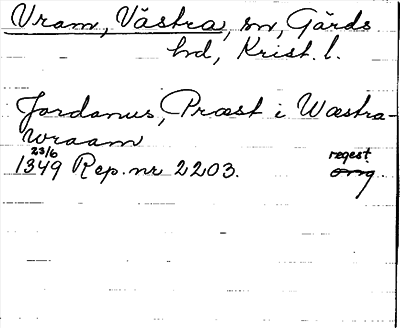 Vram, Västra, sn, Gärds
hd, Krist. l.
Jordanus, Præst i Wæstra-
wraam
23/6 regest
1349 Rep. nr 2203. orig